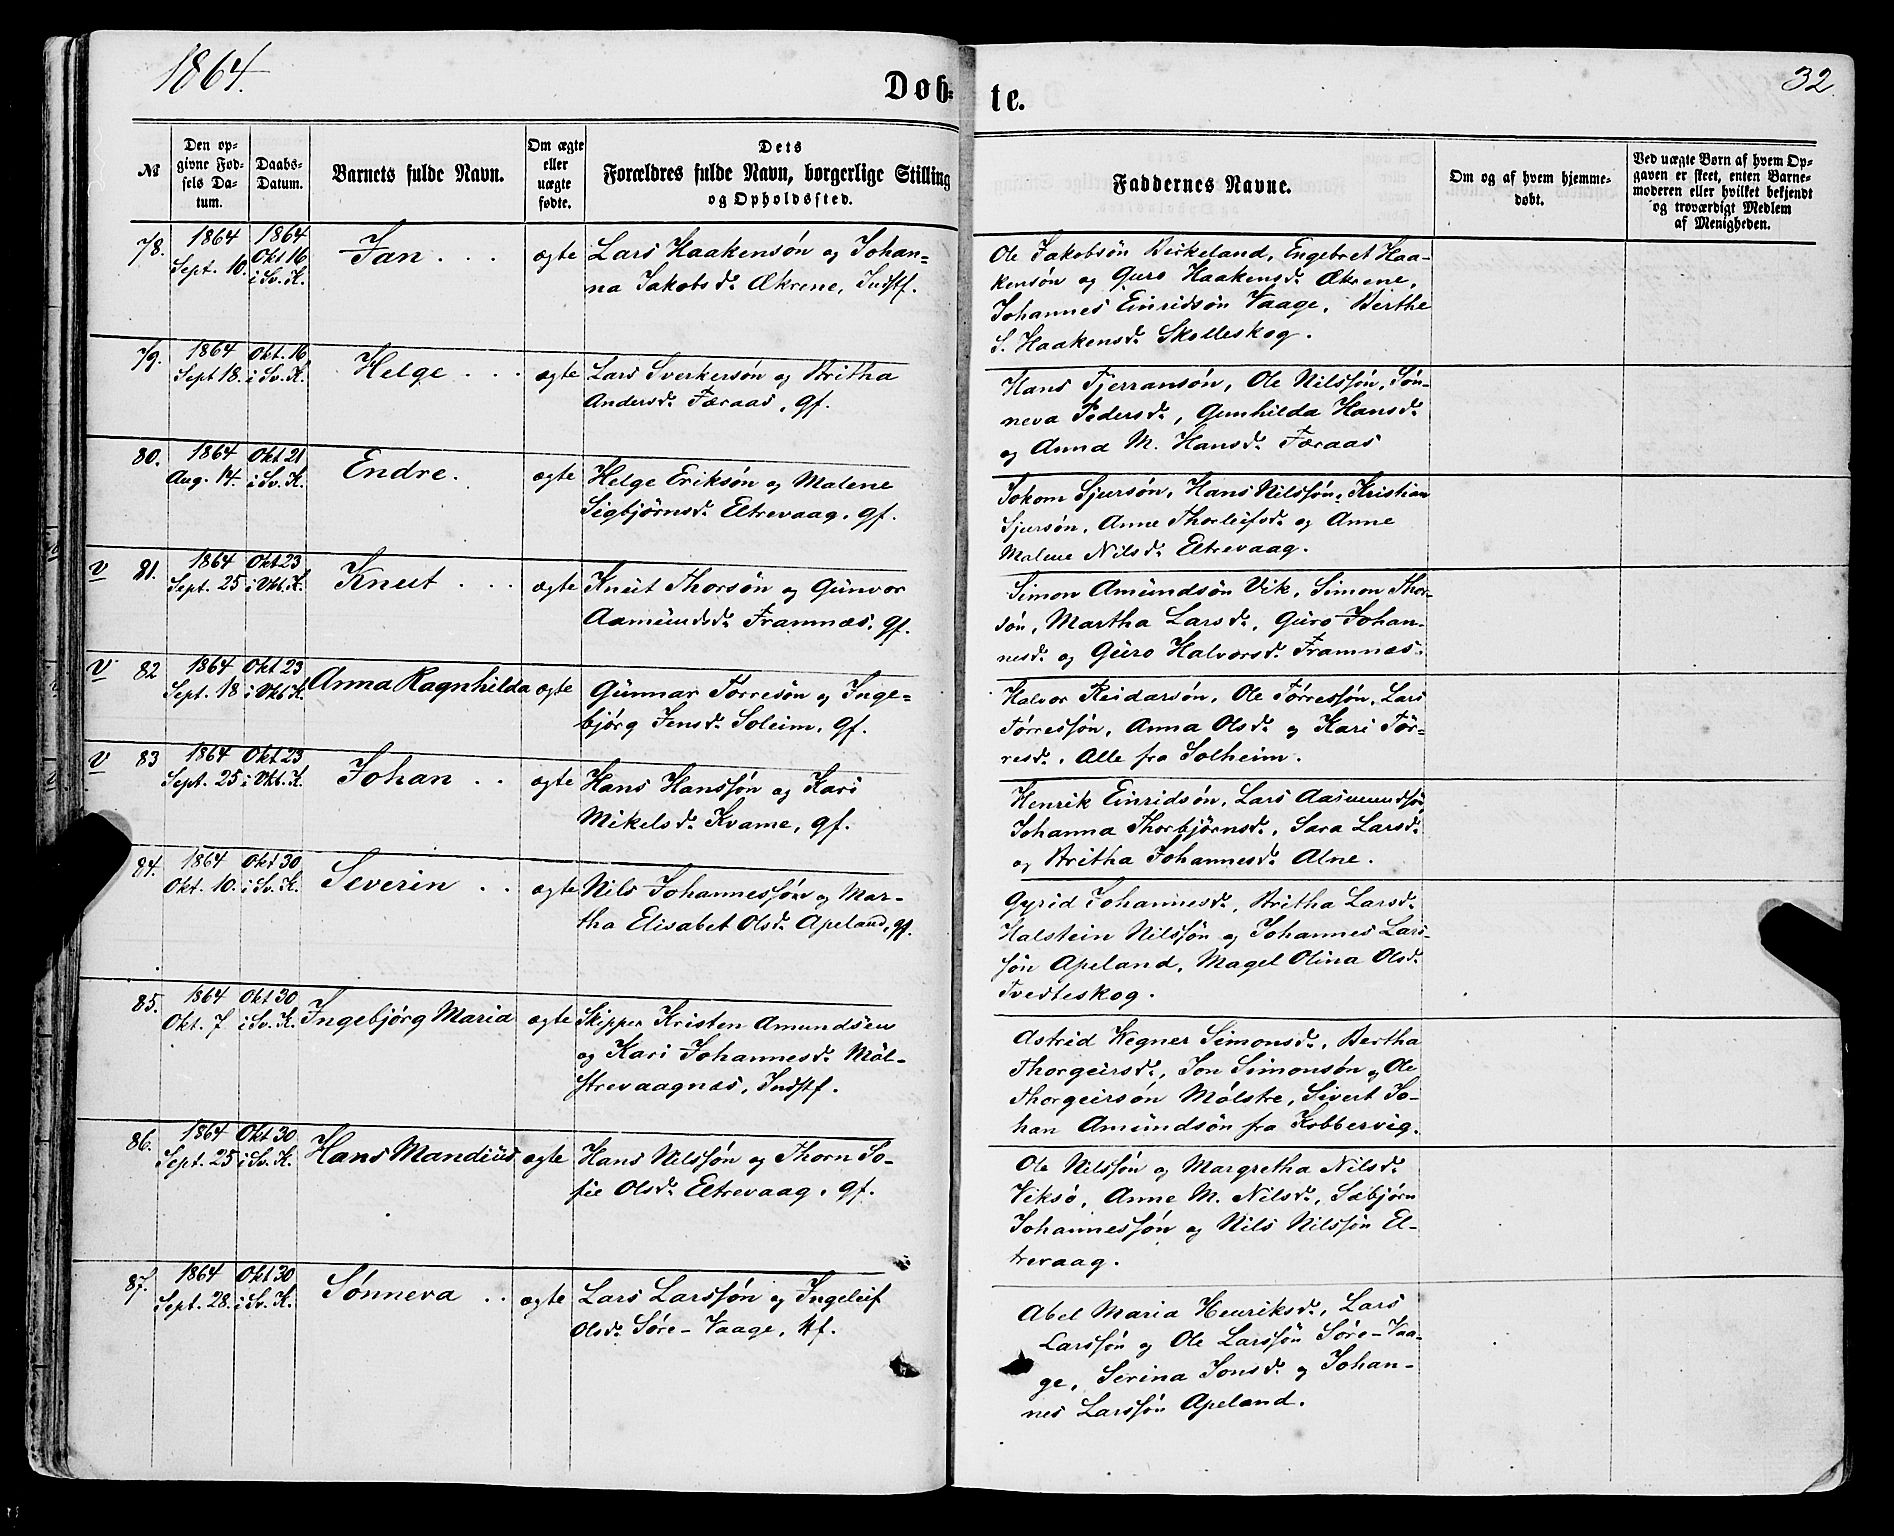 1864.
Døb=
te.
32.
№
Den op-
givne Fød-
sels Da-
tum.
Daabs-
Datum.
Barnets fulde Navn.
Om ægte
eller
uægte
fødte.
Dets
Forældres fulde Navn, borgerlige Stilling
og Opholdssted.
Faddernes Navne.
Om og af hvem hjemme-
døbt.
Ved uægte Børn af hvem Op-
gaven er skeet, enten Barne-
moderen eller hvilket bekjendt
og troværdigt Medlem
af Menigheden.
78.
1864
Sept. 10.
1864
Okt 16
i Sv. K.
Jan . . .
ægte
Lars Haakensøn og Johan=
na Jakobsd. Ækrene, Indstf.
Ole Jakobsön Birkeland, Engebret Haa-
kensøn og Guro Haakensd. Ækrene,
Johannes Einridsön Vaage, Berthe
S. Haakensd. Skolleskog.
79.
1864
Sept 18.
Okt. 16
i Sv. K.
Helge . . .
ægte
Lars Sverkersøn og Britha
Andersd. Færaas, gf.
Hans Tjerransøn, Ole Nilssøn, Søn-
neva Pedersd., Gunhilda Hansd.
og Anna M. Hansd. Færaas
80.
1864
Aug. 14.
Okt 21
i Sv. K.
Endre.
ægte
Helge Eriksøn og Malene
Sigbjörnsd. Eltrevaag, gf.
Jokom Sjursøn, Hans Nilssøn, Kristian
Sjursøn, Anne Thorleifsd. og Anne
Malene Nilsd. Eltrevaag.
V
81.
1864
Sept. 25
Okt 23
i Vbt. K.
Knut . . .
ægte
Knut Thorsøn og Gunvor
Aamundsd. Framnæs, gf.
Simon Amundsön Vik, Simon Thor-
søn, Martha Larsd., Guro Johan-
nesd. og Guro Halvorsd. Framnæs.
V
82
1864
Sept. 18
Okt 23
i Vbt K.
Anna Ragnhilda
ægte
Gunnar Torresön og Inge=
bjørg Jensd. Soleim, gf.
Halvor Reidarsøn, Ole Tórressøn, Lars
Tórressøn, Anna Olsd. og Kari Tór=
resd., Alle fra Solheim.
V
83
1864
Sept. 25
Okt 23
i Vbt. K.
Johan . .
ægte
Hans Hanssøn og Kari
Mikelsd. Kvame, gf.
Henrik Einridsøn, Lars Aasmundsön,
Johanna Thorbjörnsd., Sara Larsd.
og Britha Johannesd. Alne.
84.
1864
Okt. 10.
Okt 30
i Sv. K.
Severin . .
ægte
Nils Johannessøn og Mar-
tha Elisabet Olsd. Apeland, gf.
Gyrid Johannesd., Britha Larsd.
Halstein Nilssøn og Johannes Lars-
søn Apeland, Magel Olina Olsd.
Tvedteskog.
85.
1864
Okt. 7
Okt 30
i Sv. K.
Ingebjörg Maria
ægte
Skipper Kristen Amundsen
og Kari Johannesd. Möl-
strevaagnæs, Indstf.
Astrid Wegner Simonsd., Bertha
Thorgeirsd., Jon Simonsøn og Ole
Thorgeirsøn Mölstre, Sivert Jo-
han Amundsøn fra Kobbervig.
86.
1864
Sept. 25
Okt 30
i Sv. K.
Hans Mandius
ægte
Hans Nilssøn og Thorn So-
fie Olsd. Eltrevaag, gf.
Ole Nilssøn og Margretha Nilsd.
Viksø, Anne M. Nilsd., Sæbjørn
Johannessøn og Nils Nilssøn El-
trevaag.
87.
1864
Sept. 28.
Okt 30
i Sv. K.
Sønneva . .
ægte
Lars Larssøn og Ingeleif
Olsd. Søre-Vaage, kf.
Abel Maria Henriksd., Lars
Larssøn og Ole Larssön Søre-Vaa-
ge, Serina Jonsd. og Johan-
nes Larssøn Apeland.